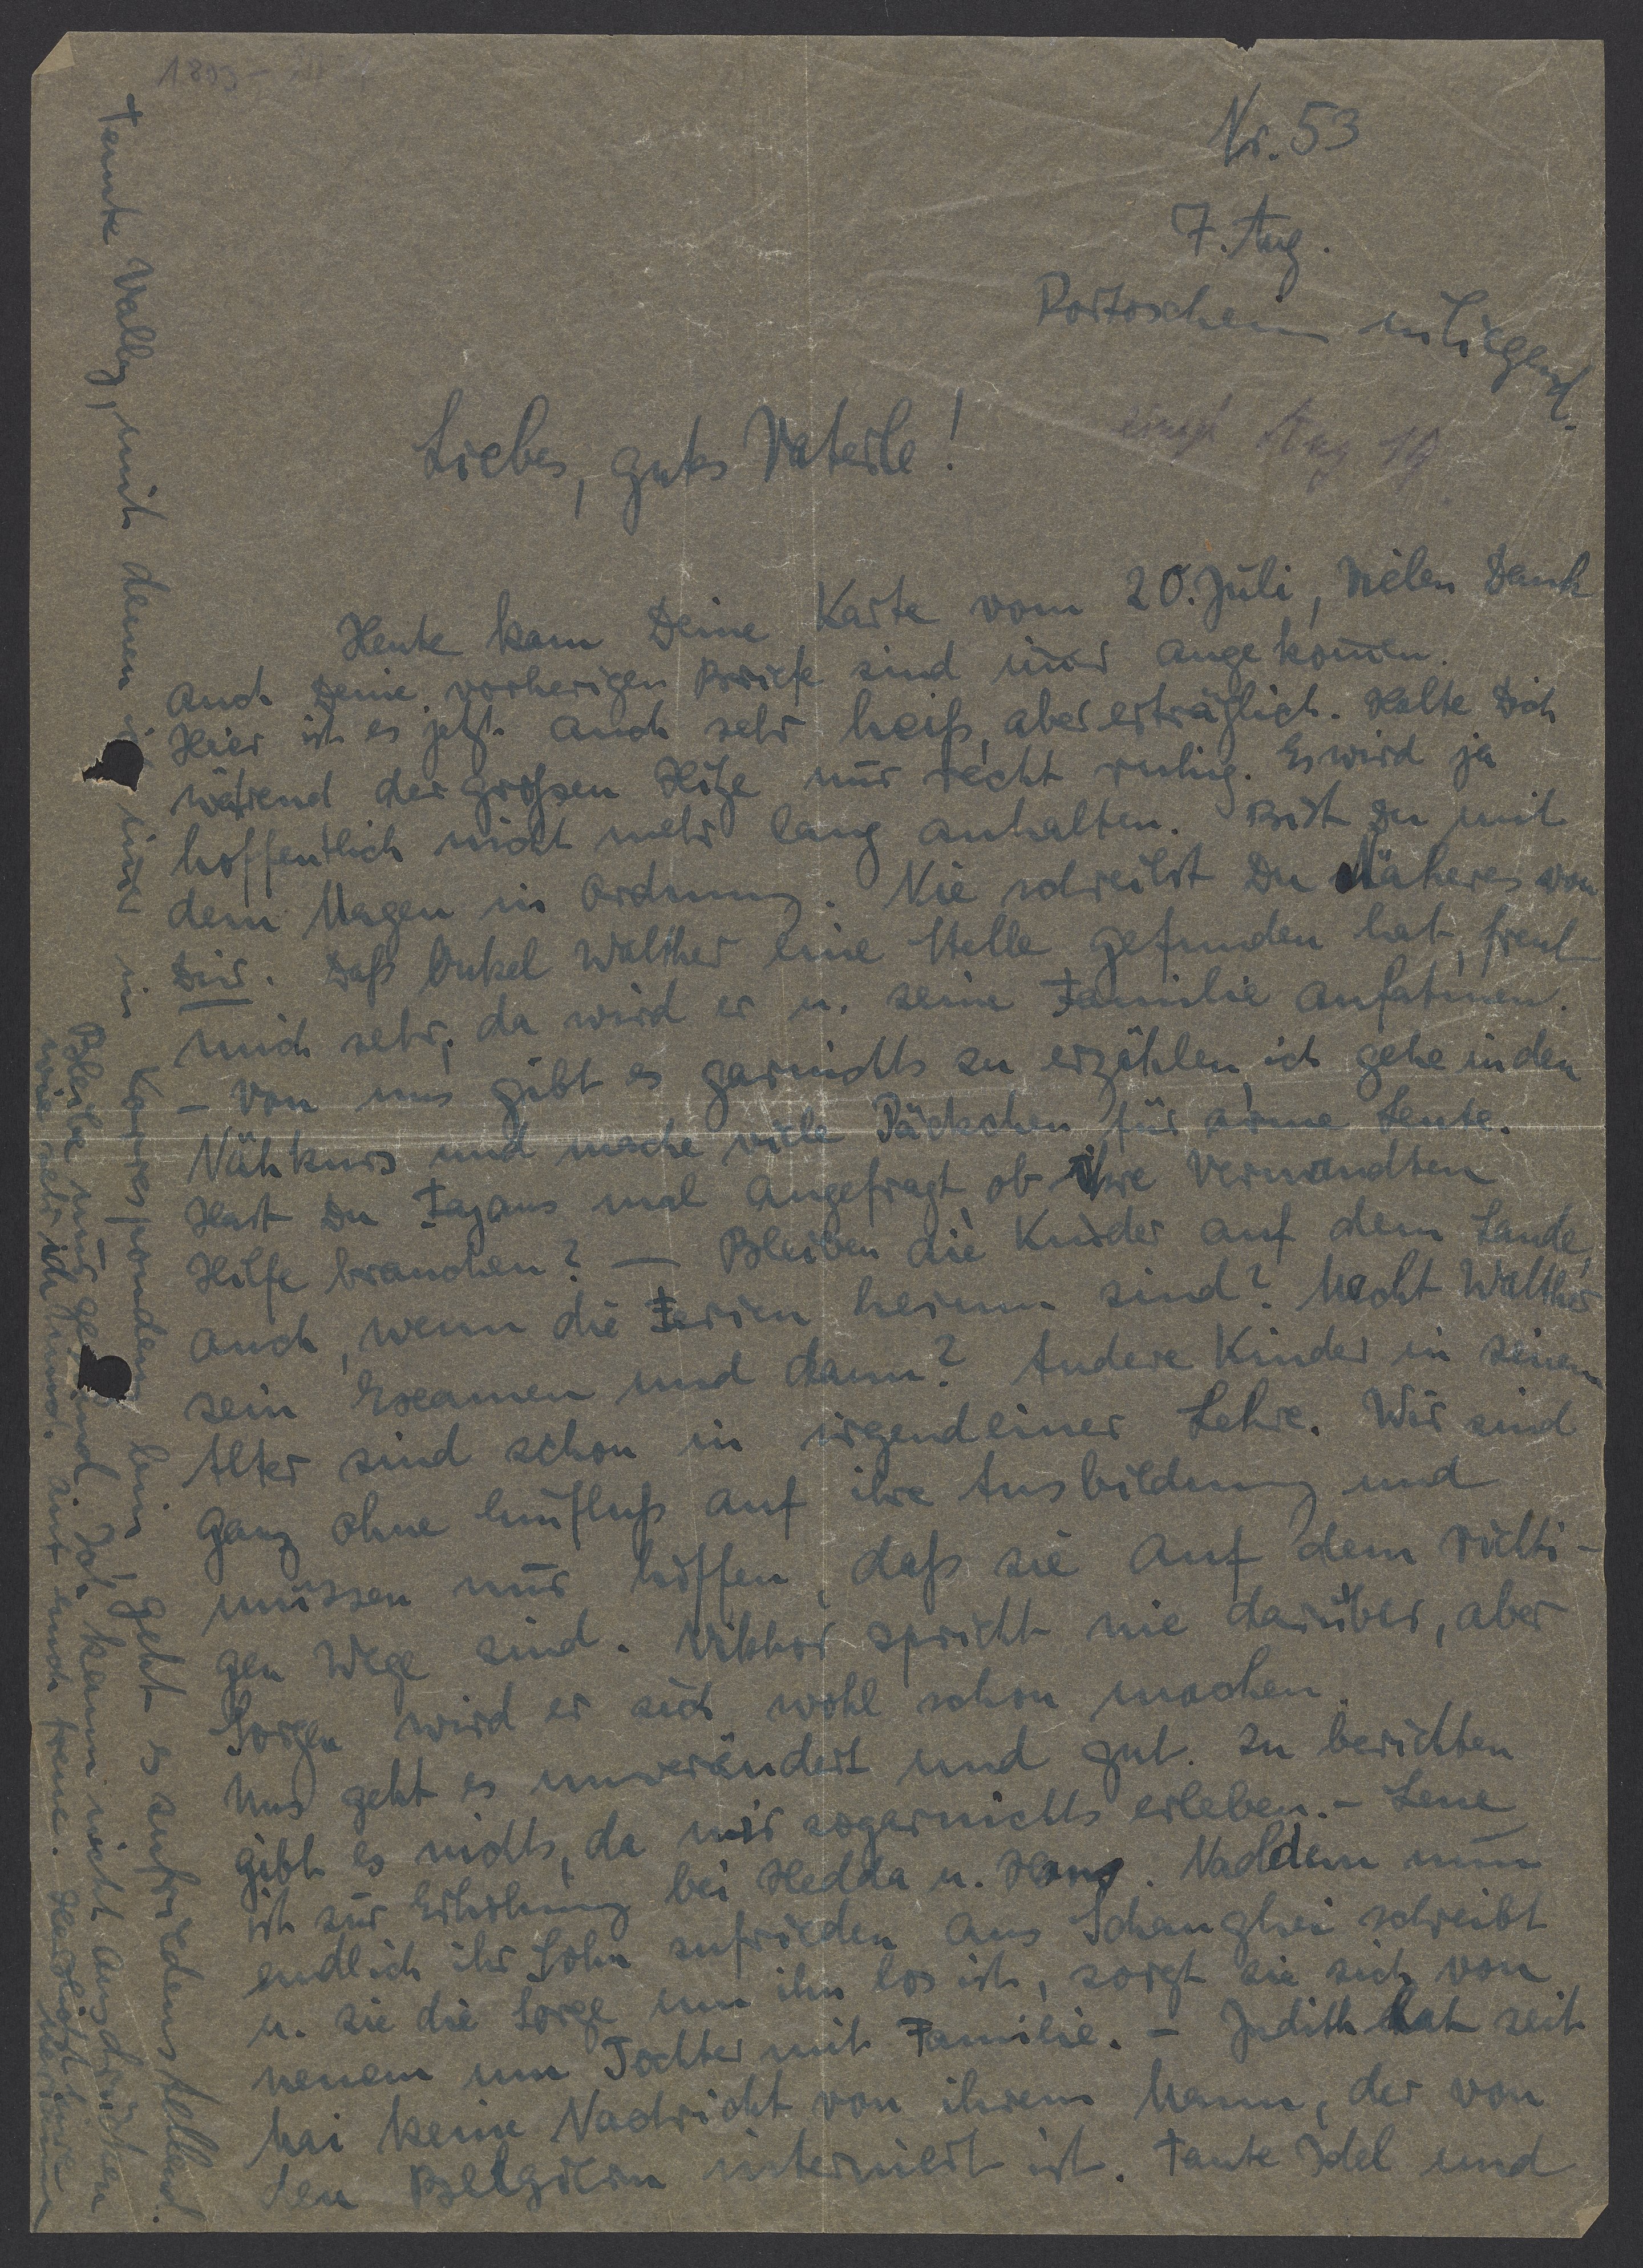 Nr. 53
7. Aug.
Portoschein inliegend.
Aug 19
Liebes, gutes Vaterle!
Heute kam Deine Karte vom 20. Juli, vielen Dank
auch Deine vorherigen Briefe sind angekom̄en.
Hier ist es jetzt auch sehr heiß, aber erträglich. Halte Dich
während der großen Hitze nur recht ruhig. Es wird ja
hoffentlich nicht mehr lang anhalten. Bist Du mit
dem Magen in Ordnung. Nie schreibst Du Näheres von
Dir. Daß Onkel Walther eine Stelle gefunden hat, freut
mich sehr, da wird er u. seine Familie aufatmen.
- Von uns gibt es garnichts zu erzählen, ich gehe in den
Nähkurs und mache viele Päckchen für arme Leute.
Hast Du Fajans mal angefragt, ob ihre Verwandten
Hilfe brauchen? — Bleiben die Kinder auf dem Lande,
auch, wenn die Ferien herum sind? Macht Walther
sein Examen und dann? Andere Kinder in seinem
Alter sind schon in irgendeiner Lehre. Wir sind
ganz ohne Einfluß auf ihre Ausbildung und
müssen nur hoffen, daß sie auf dem richti-
gen Wege sind. Viktor spricht nie darüber, aber
Sorgen wird er sich wohl schon machen.
Uns geht es unverändert und gut. Zu berichten
gibt es nichts, da wir sogarnichts erleben. - Lene
ist zur Erholung bei Hedda u. Hans. Nachdem nun
endlich ihr Sohn zufrieden aus Schanghei schreibt
u. sie die Sorge um ihn los ist, sorgt sie sich von
neuem um Tochter mit Familie. - Judith hat seit
Mai keine Nachricht von ihrem Mann, der von
den Belgiern interniert ist. Tante Idel und
Tante Vally, mit denen ich in Korrespondenz bin, geht es zufriedenstellend.
Bleibe nur gesund, ich kann nicht ausdrücken
wie sehr ich sind Euch treue. Herzlichst Eure